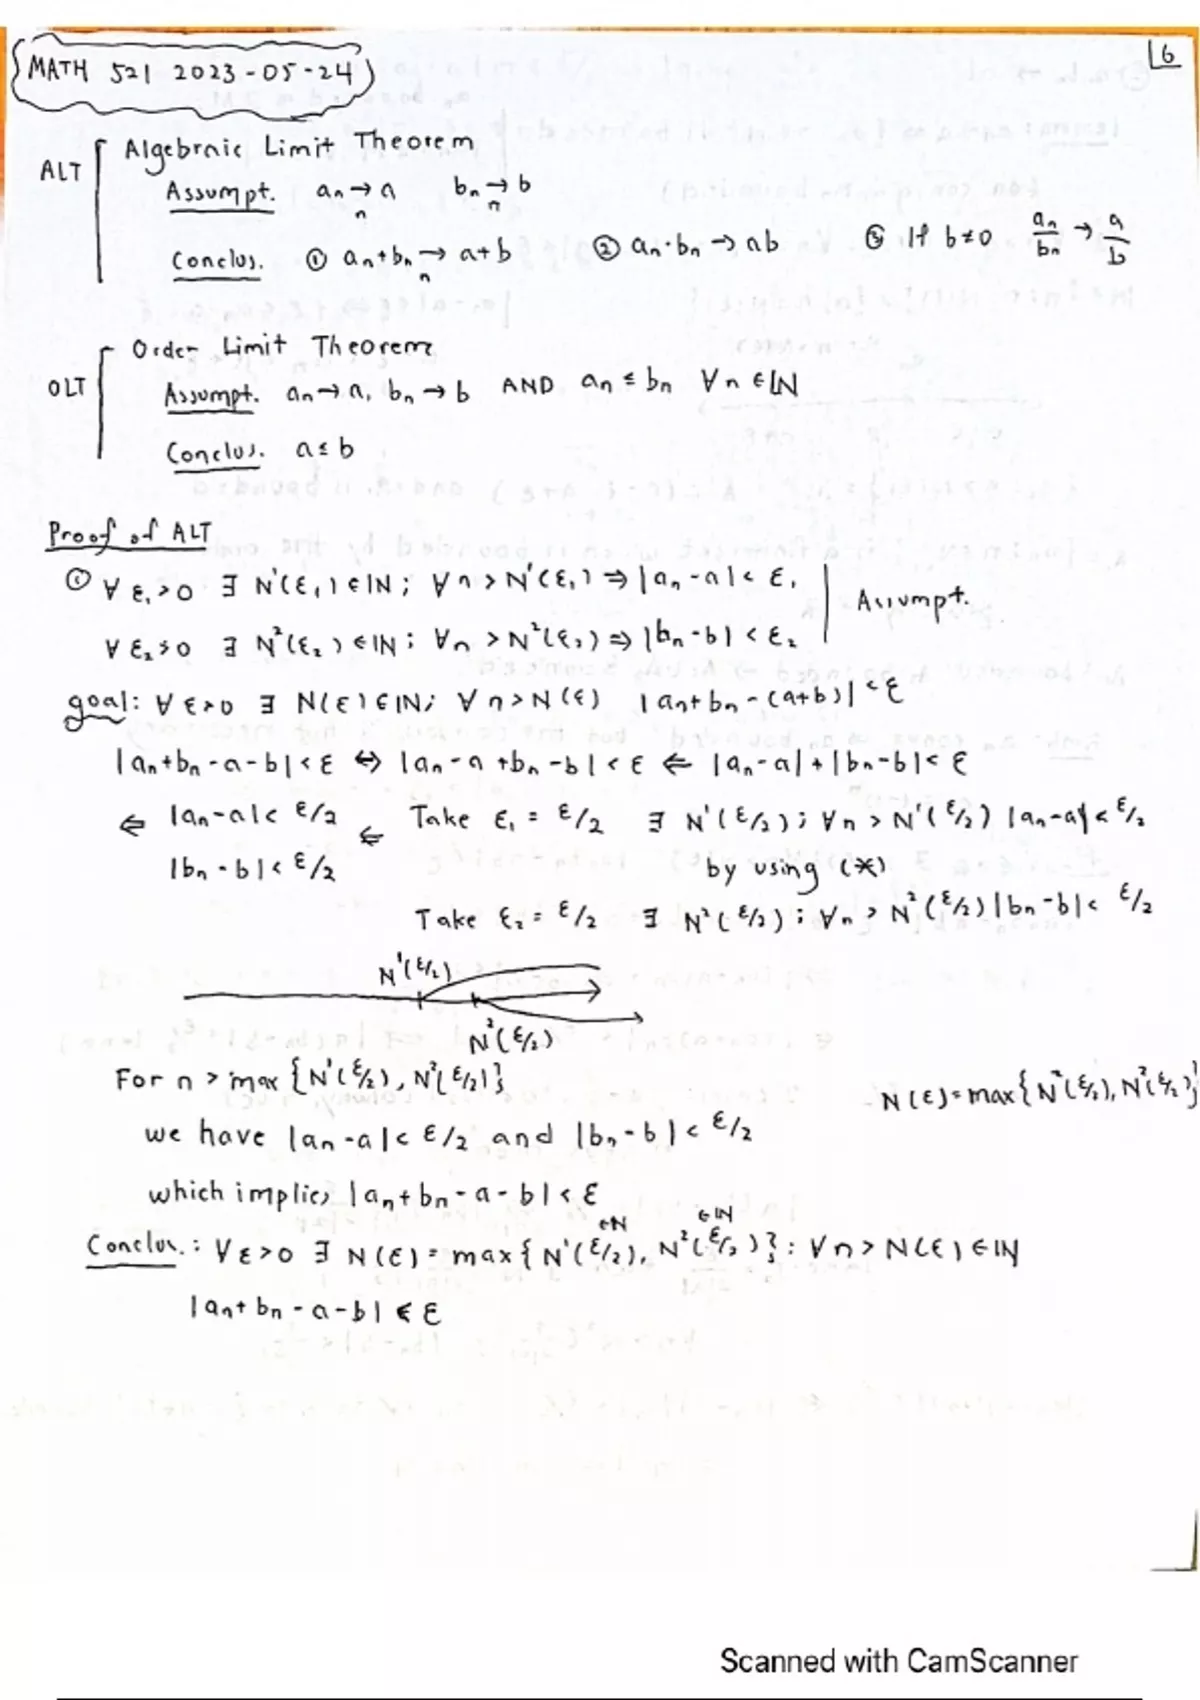 MATH 521 2023-05-24
16
ALT Algebraic Limit Theorem
Assumpt. an → a n bn → b n
Conclus. ① an+bn → a+b n ② an·bn → ab ③ If b≠0 an/bn → a/b
OLT Order Limit Theorem
Assumpt. an → a, bn → b AND an ≤ bn ∀n ∈ IN
Conclus. a ≤ b
Proof of ALT
① ∀ ε₁>0 ∃ N¹(ε₁) ∈ IN; ∀n > N¹(ε₁) ⇒ |an-a| < ε₁
∀ ε₂>0 ∃ N²(ε₂) ∈ IN; ∀n > N²(ε₂) ⇒ |bn-b| < ε₂
Assumpt.
goal: ∀ ε>0 ∃ N(ε) ∈ IN; ∀n > N(ε) |an+bn-(a+b)| < ε
|an+bn-a-b| < ε ⇔ |an-a+bn-b| < ε ⇐ |an-a|+|bn-b| < ε
⇐ |an-a| < ε/2 ⇐ Take ε₁ = ε/2 ∃ N¹(ε/2); ∀n > N¹(ε/2) |an-a| < ε/2
|bn-b| < ε/2 by using (*)
Take ε₂ = ε/2 ∃ N²(ε/2); ∀n > N²(ε/2) |bn-b| < ε/2
N¹(ε/2)
N²(ε/2)
For n > max {N¹(ε/2), N²(ε/2)}
N(ε)=max{N²(ε/2), N²(ε/2)}
we have |an-a| < ε/2 and |bn-b| < ε/2
which implies |an+bn-a-b| < ε
∈N ∈IN
Conclus.: ∀ ε>0 ∃ N(ε) = max{N¹(ε/2), N²(ε/2)}: ∀n > N(ε) ∈ IN
|an+bn-a-b| < ε
Scanned with CamScanner